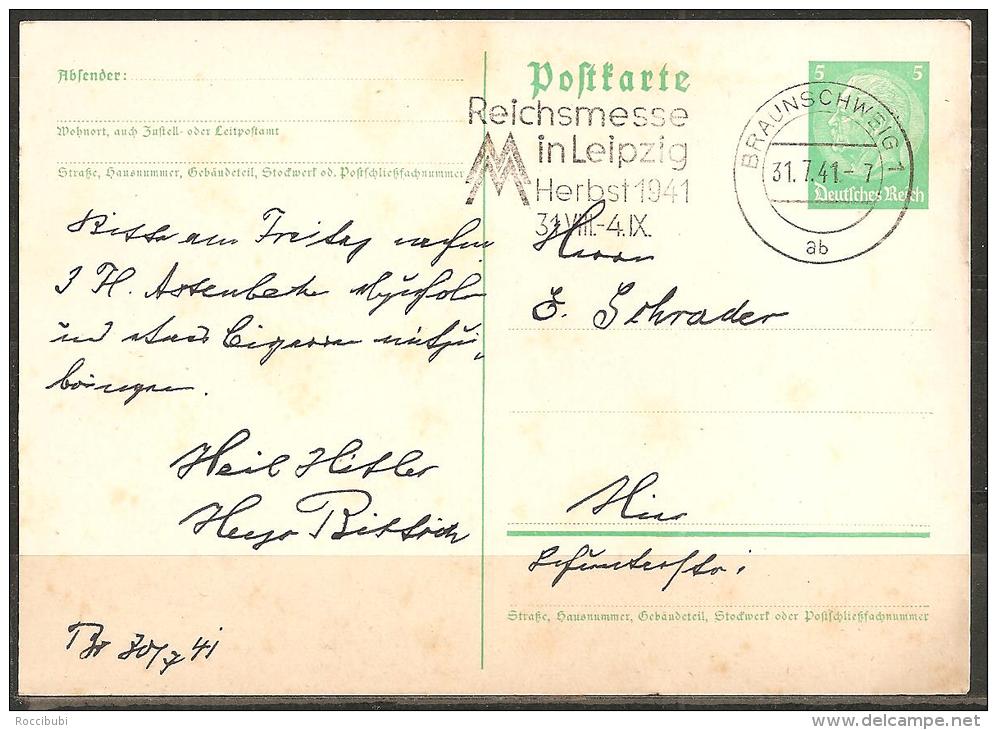 Absender:
Wohnort, auch Zustell- oder Leitpostamt
Straße, Hausnummer, Gebäudeteil, Stockwerk od. Postschließfachnummer
Postkarte
Reichsmesse
in Leipzig
Herbst 1941
31.VIII.-4.IX.
5 5
Deutsches Reich
BRAUNSCHWEIG 1
31.7.41.- 7
ab
Bitte am Freitag
3 Fl.
und Cigarren mitzu-
bringen.
Heil Hitler
Herrn
E. Schrader
Hier
Straße, Hausnummer, Gebäudeteil, Stockwerk oder Postschließfachnummer
30/7 41
Roccibubi
delcampe.net